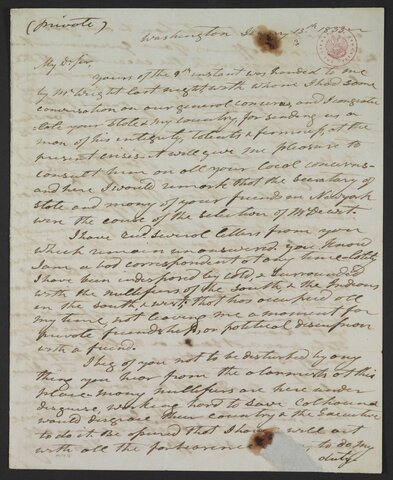 (private)
Washington Jany 13th 1833
My Dr Sir,
yours of the 9th instant was handed to me
by Mr Wright last night with whom I had some
conversation on our general concerns, and I congratu
late your State & my country, for sending us a
man of his integrity, talents & firmness, at the
present crisis it will give me pleasure to
consult him on all your local concerns
and here I would remark that the Secretary of
State and many of your friends in Newyork
were the cause of the selection of Mr
I have recd several letters from you
which remain unanswered. you know
I am a bad correspondent at any time lately
I have been indisposed by cold & surrounded
with the nullifiers of the South, & the Indians
in the South, & west; that has occupied all
my time, not leaving me a moment for
private friendship, or political discussion
with a friend.
I beg of you not to be disturbed by any
thing you hear from the alarmists at this
place. many nullifiers are here under
disguise, working hard to save Calhoun &
would disgrace their country & the Executive
to do it. Be assured that I have & will act
with all the forbearance to do my
duty